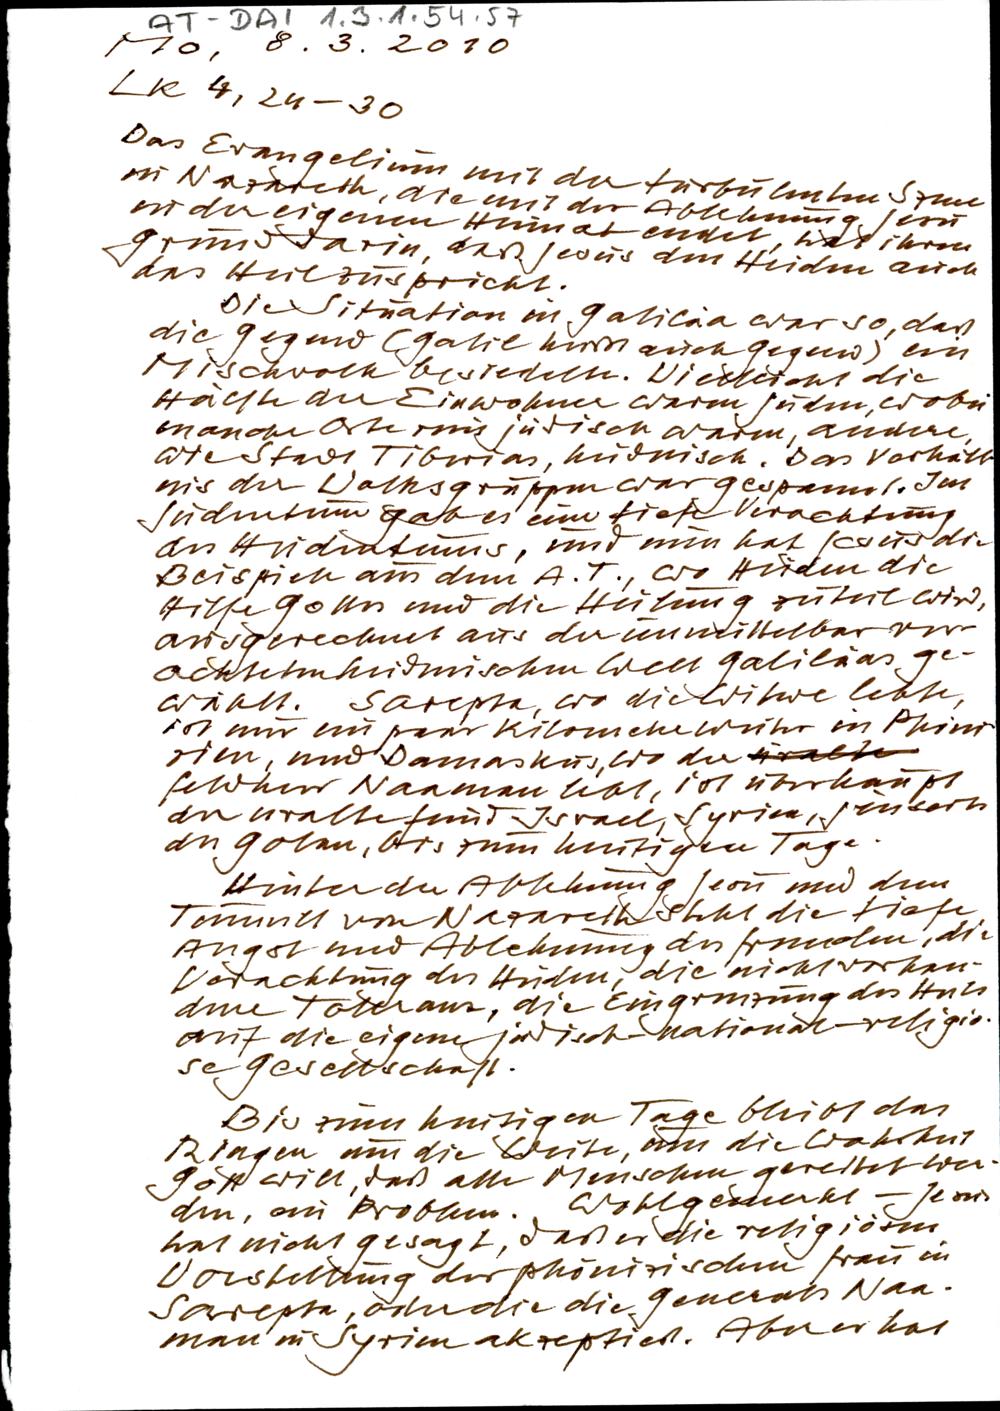 AT-DAI 1.3.1.54.57
Mo, 8.3.2010
Lk 4, 24-30
Das Evangelium mit der turbulenten Szene
in Nazareth, die mit der Ablehnung Jesu
in der eigenen Heimat endet, hat ihren
Grund darin, daß Jesus den Heiden auch
das Heil zuspricht.
Die Situation in Galiläa war so, daß
die Gegend (Galil heißt auch Gegend) ein
Mischvolk besiedelte. Vielleicht die
Hälfte der Einwohner waren Juden, wobei
manche Orte rein jüdisch waren, andere,
wie Stadt Tiberias, heidnisch. Das Verhält
nis der Volksgruppen war gespannt. Im
Judentum gab es eine tiefe Verachtung
des Heidentums, und nun hat Jesus die
Beispiele aus dem A.T., wo Heiden die
Hilfe Gottes und die Heilung zuteil wird,
ausgerechnet aus der unmittelbar ver-
achteten heidnischen Welt Galiläas ge-
wählt. Sarepta, wo die Witwe lebte,
ist nur ein paar Kilometer weiter in Phöni
zien, und Damaskus, wo der uralte
Feldherr Naaman lebt, ist überhaupt
der uralte Feind Israel, Syrien, jenseits
des Golan, bis zum heutigen Tage.
Hinter der Ablehnung Jesu und dem
Tumult von Nazareth steht die tiefe
Angst und Ablehnung des Fremden, die
Verachtung des Heiden, die nicht vorhan-
dene Toleranz, die Eingrenzung des Heils
auf die eigene jüdisch-national-religiö-
se Gesellschaft.
Bis zum heutigen Tage bleibt das
Ringen um die Weite, um die Wahrheit
Gott will, daß alle Menschen gerettet wer-
den, ein Problem. Wohlgemerkt - Jesus
hat nicht gesagt, daß er die religiösen
Vorstellung der phönizischen Frau in
Sarepta, oder die die Generals Naa-
man in Syrien akzeptiert. Aber er hat